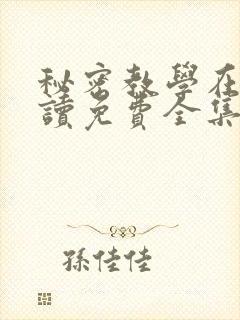 秘密教學在
讀免費全集
孫佳佳